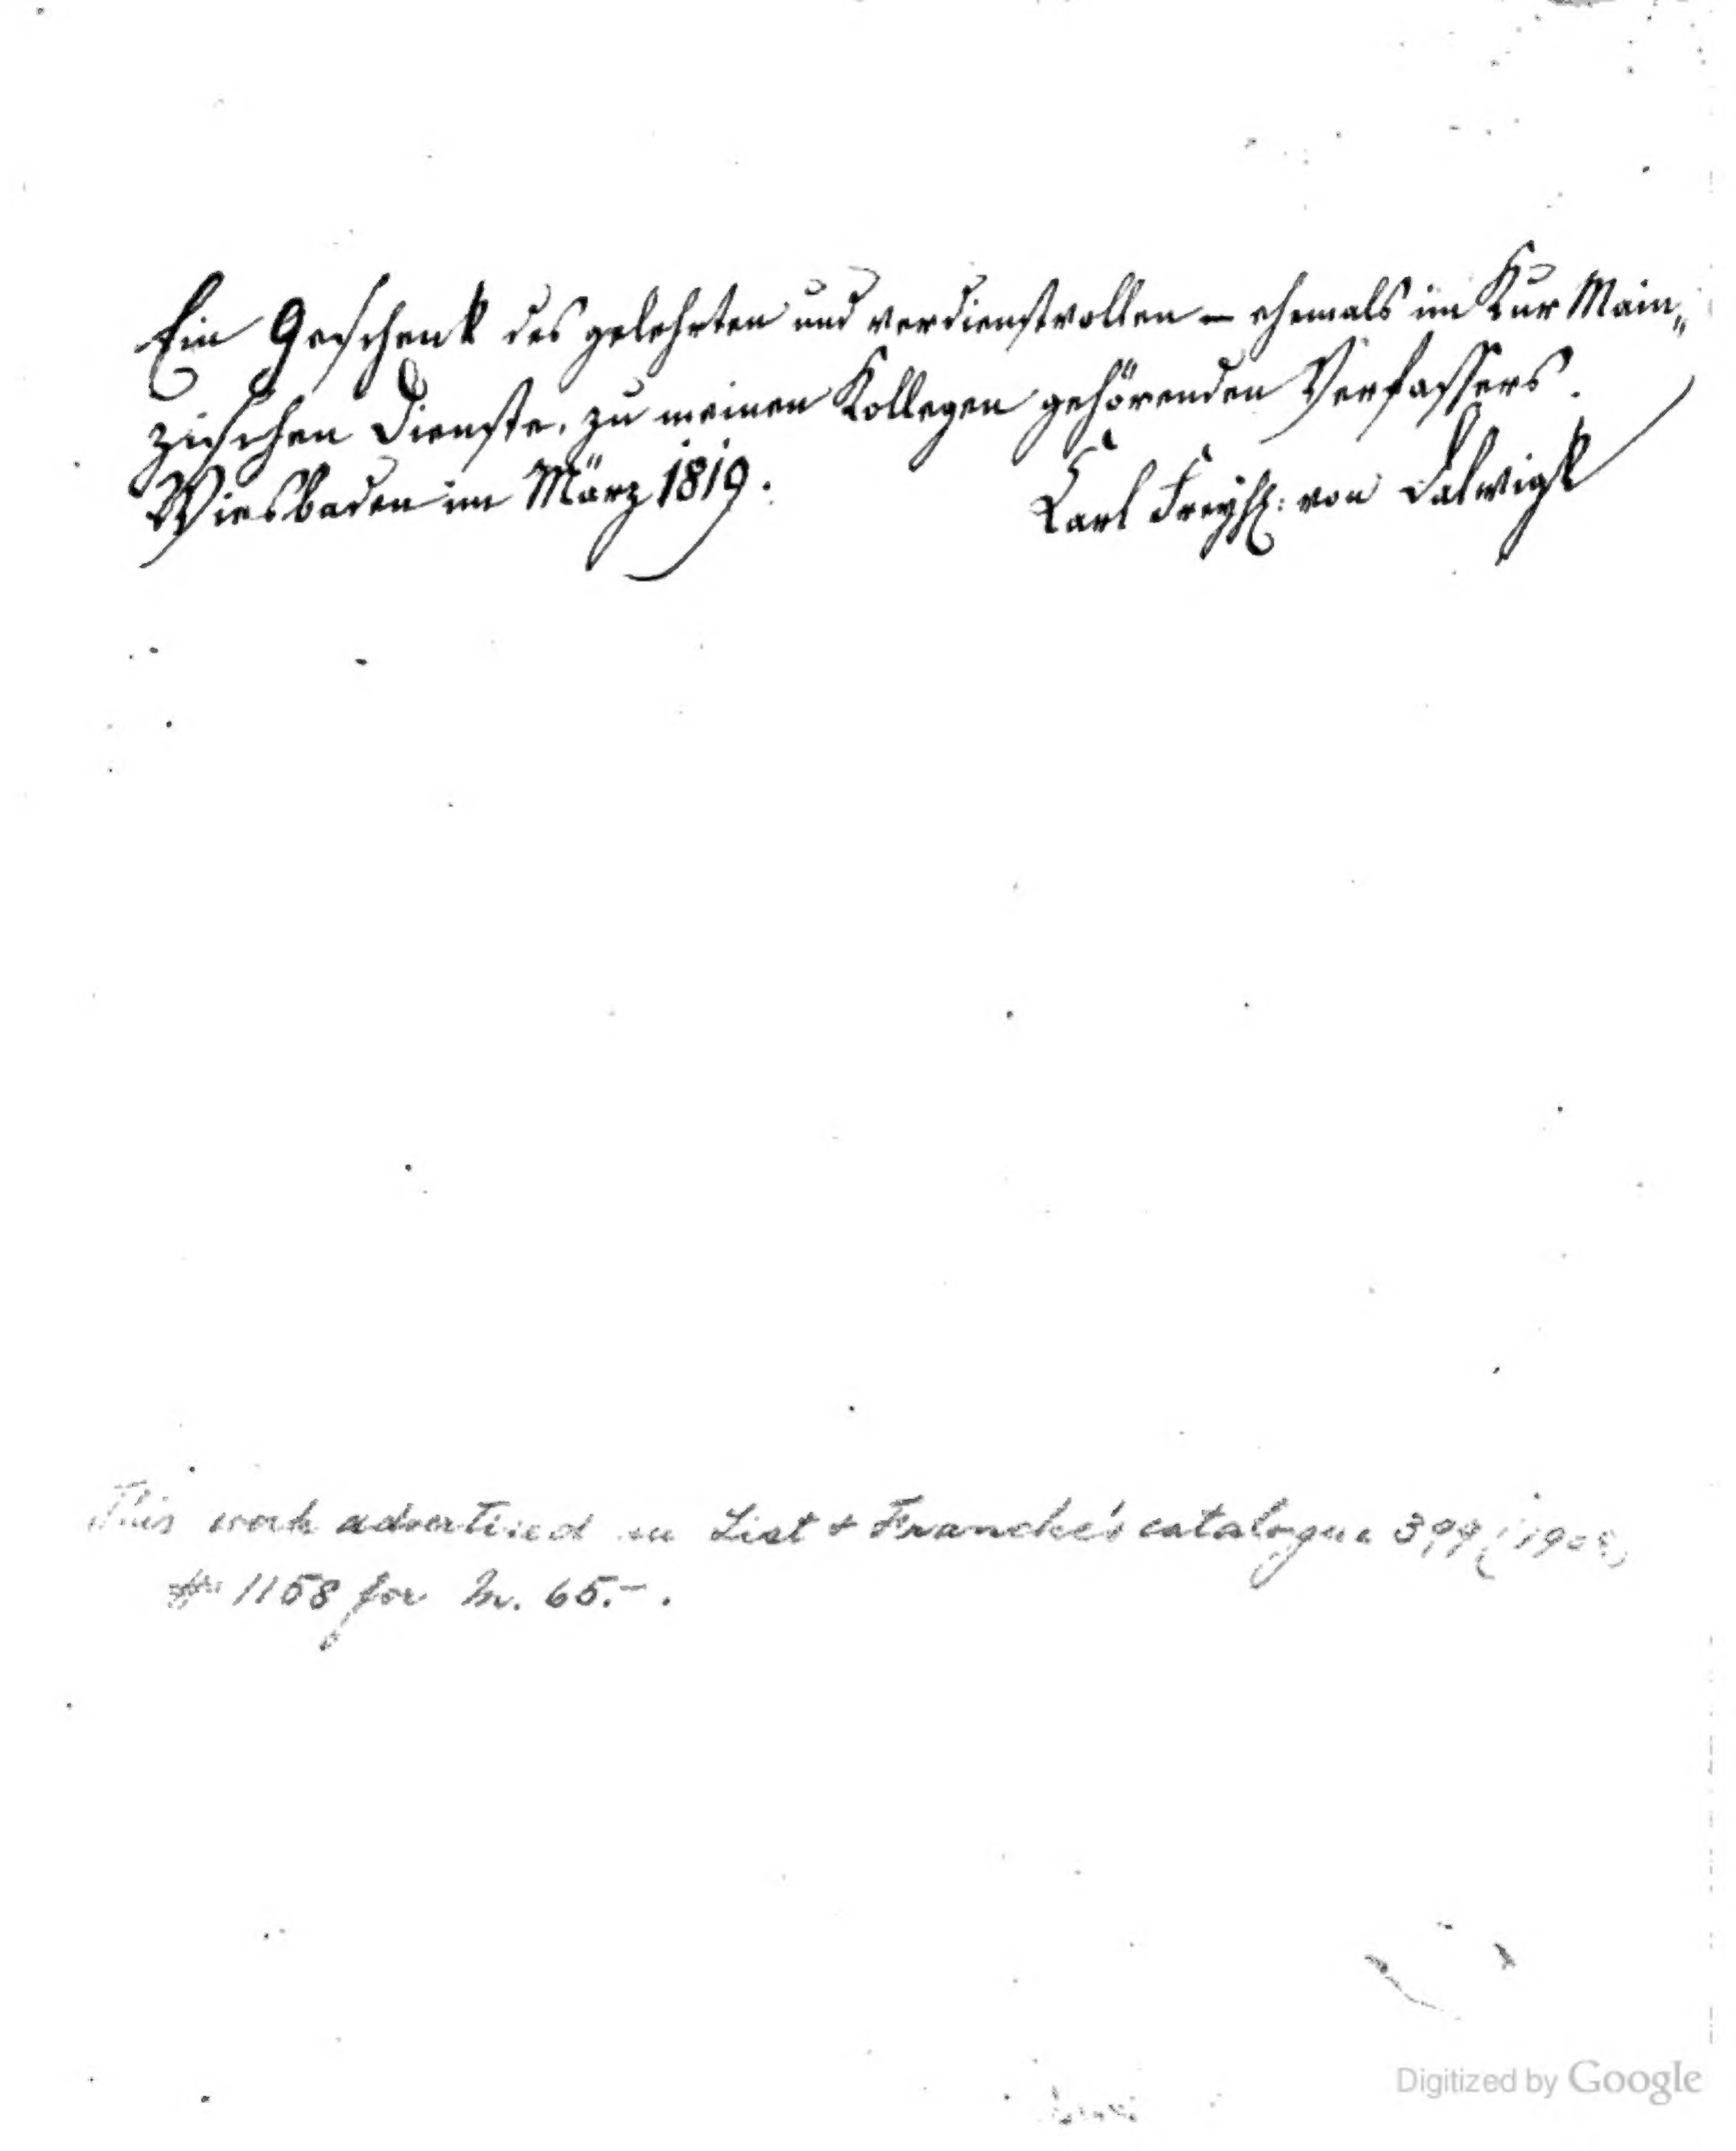 Ein Geschenk des gelehrten und verdienstvollen – ehemals im Kur Main„
zischen Dienste, zu meinen Kollegen gehörenden Verfassers.
Wiesbaden im März 1819.
Karl Freyh: von Dalwigk
This work advertised in List & Francke's catalogue 399
# 1158 for M. 65.-.
Digitized by Google